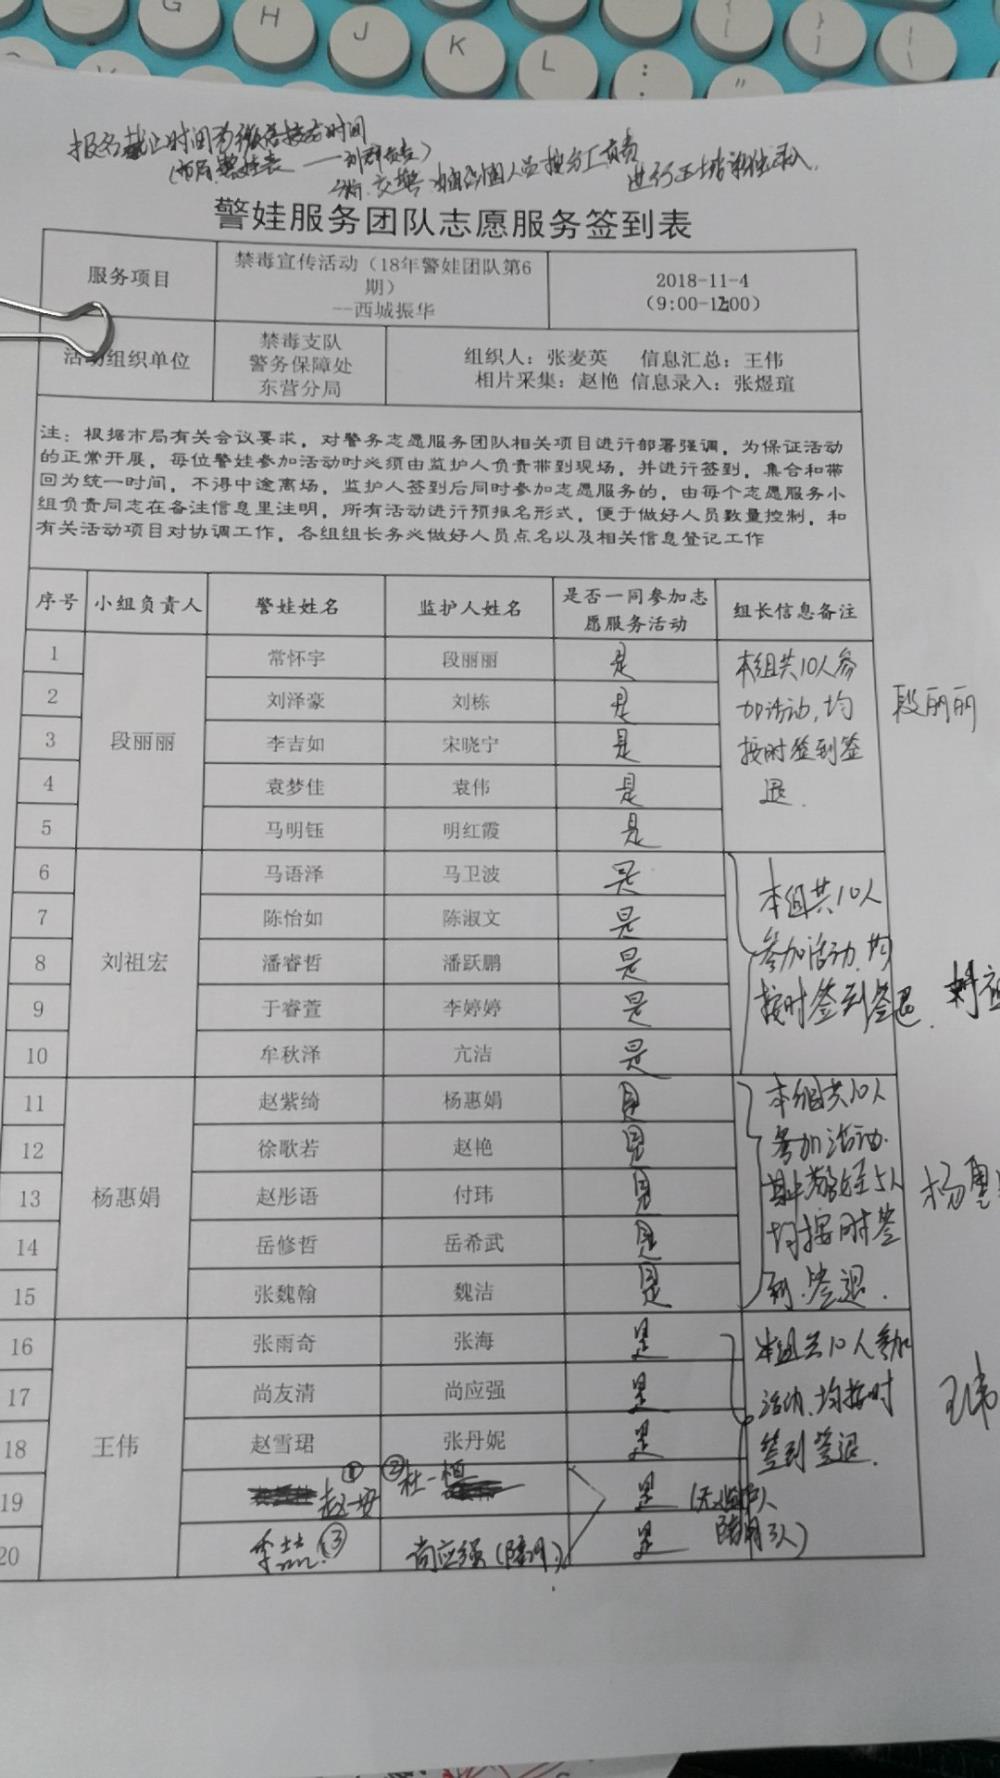 G H J K L : "
报名截止时间为微信接龙时间
警娃服务团队志愿服务签到表
服务项目 禁毒宣传活动（18年警娃团队第6期） --西城振华 2018-11-4 （9:00-12:00）
活动组织单位 禁毒支队 警务保障处 东营分局 组织人：张麦英 信息汇总：王伟
相片采集：赵艳 信息录入：张煜瑄
注：根据市局有关会议要求，对警务志愿服务团队相关项目进行部署强调，为保证活动
的正常开展，每位警娃参加活动时必须由监护人负责带到现场，并进行签到，集合和带
回为统一时间，不得中途离场，监护人签到后同时参加志愿服务的，由每个志愿服务小
组负责同志在备注信息里注明，所有活动进行预报名形式，便于做好人员数量控制，和
有关活动项目对协调工作，各组组长务必做好人员点名以及相关信息登记工作
序号 小组负责人 警娃姓名 监护人姓名 是否一同参加志愿服务活动 组长信息备注
段丽丽 本组共10人参加活动，均按时签到签退. 段丽丽
1 常怀宇 段丽丽 是
2 刘泽豪 刘栋 是
3 李吉如 宋晓宁 是
4 袁梦佳 袁伟 是
5 马明钰 明红霞 是
刘祖宏 本组共10人参加活动、均按时签到签退.
6 马语泽 马卫波 是
7 陈怡如 陈淑文 是
8 潘睿哲 潘跃鹏 是
9 于睿萱 李婷婷 是
10 牟秋泽 亢洁 是
杨惠娟 本组共10人参加活动.其中警娃5人均按时签到.签退. 杨惠
11 赵紫绮 杨惠娟 是
12 徐歌若 赵艳 是
13 赵彤语 付玮 是
14 岳修哲 岳希武 是
15 张魏翰 魏洁 是
王伟 本组共10人参加活动、均按时签到签退. 王伟
16 张雨奇 张海 是
17 尚友清 尚应强 是
18 赵雪珺 张丹妮 是
19 ① 赵一安 ② 杜一 是 (无监护人
20 ③ 尚应强 是 3人)